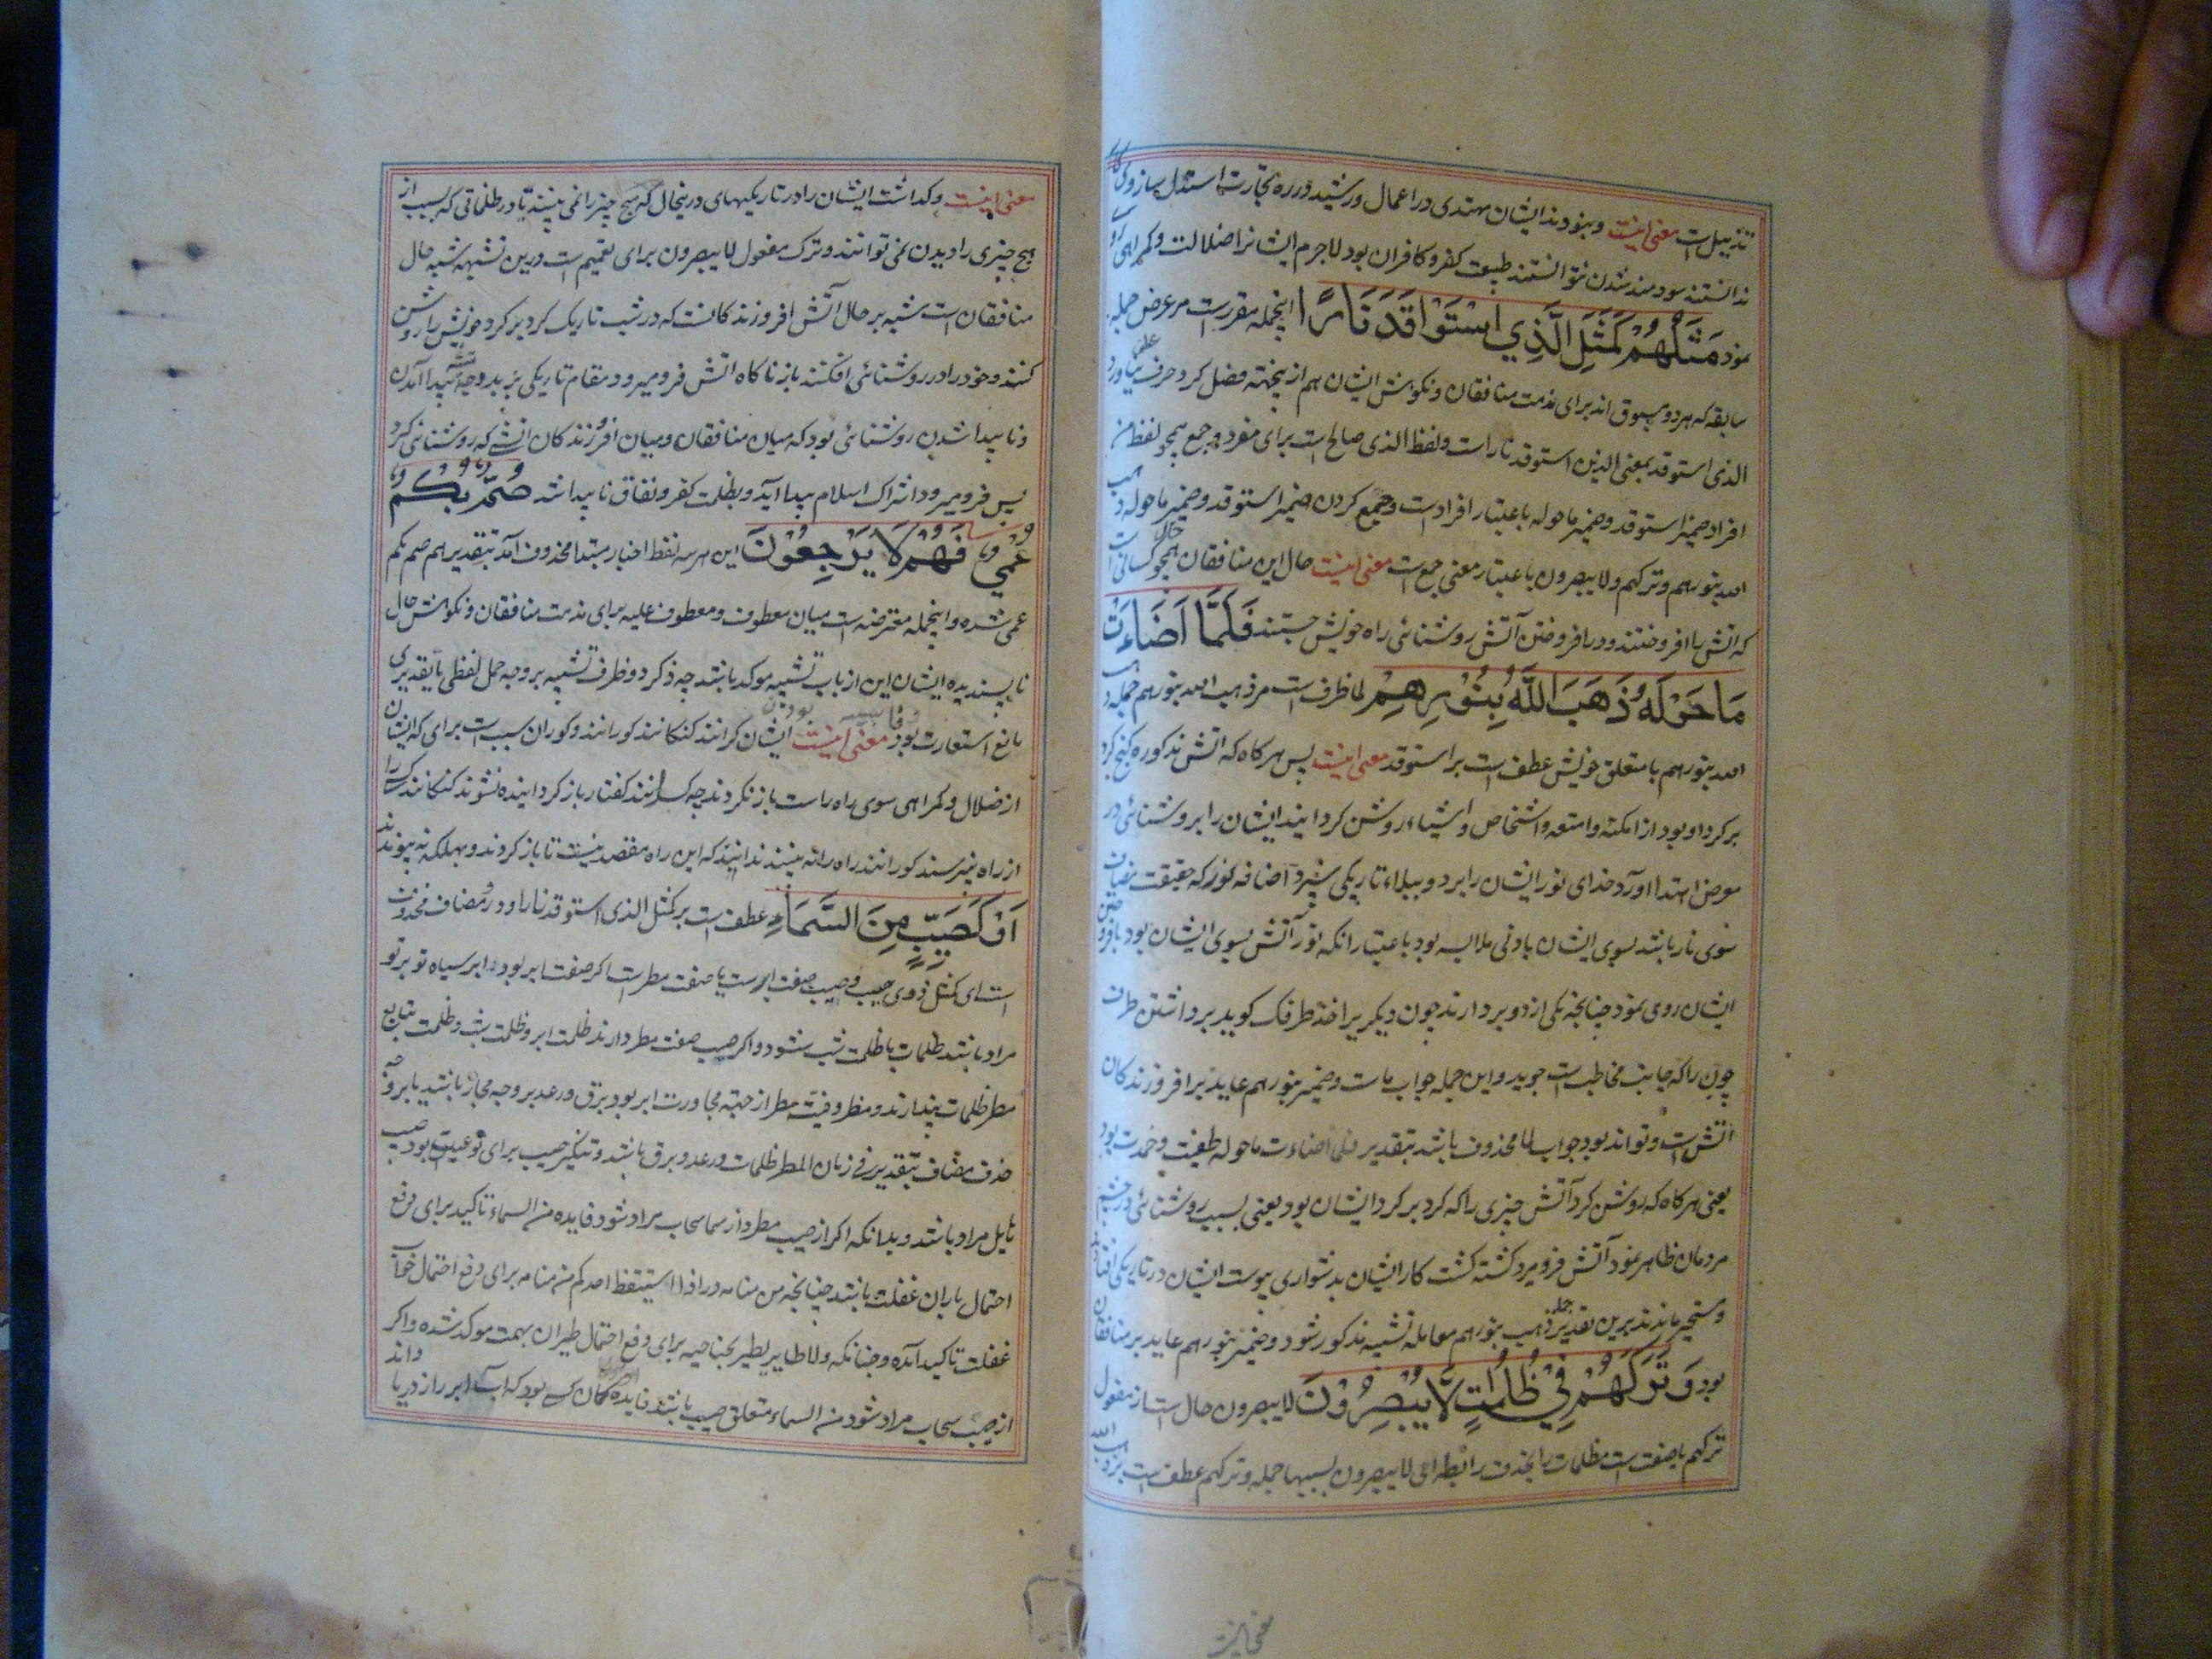 تذییل است معنی اینست و نبودند ایشان مهتدی در اعمال و رشید در ره تجارت استدل
ندانستند سود مند شدن نتوانستند طبیعت کفر و کافران بود لاجرم ایشانرا ضلالت و کمراهی
نمود مَثَلُهُمْ كَمَثَلِ الَّذِي اسْتَوْقَدَ نَارًا اینجمله مقررست مر عرض جمله
سابقه که هر دو مسوق اند برای مذمت منافقان و نکوهش ایشان هم از ینجهته فصل کرد و حرف عطف نیاورد
الذی استوقد بمعنی الذین استوقد نارا ست و لفظ الذی صالح است برای مفرد و جمع همچو لفظ من
افراد ضمیر استوقد و ضمیر ما حوله باعتبار افراد است و جمع کردن ضمیر استوقد و ضمیر ما حوله ذهب
الله بنورهم و ترکهم و لا یبصرون باعتبار معنی جمع است معنی اینست حال این منافقان همچو حال کسانی است
که آتش را افروختند و در افروختن آتش روشنائی راه خویش جستند فَلَمَّا اَضَاءَتْ
مَا حَوْلَهُ ذَهَبَ اللّٰهُ بِنُوْرِهِمْ لما ظرف است مر ذهب الله بنورهم جمله ذهب
الله بنورهم با متعلق خویش عطف است بر استوقد معنی اینست پس هر کاه که آتش مذکوره
بر کرد او بود از امکنه و امتعه و اشخاص و اشیاء روشن کردانید ایشان را بروشنائی در
معرض اهتدا آورد خدای نور ایشان را ببرد و ببلاء تاریکی سپرد اضافه نور که حقیقت مضاف
سوی نار باشد بسوی ایشان بادنی ملابسه بود باعتبار آنکه نور آتش بسوی ایشان بود بافروختن
ایشان روی نمود چنانچه یکی از دو بردارند چون دیگریرا خذ طرفک کوید برداشتن طرف
چون را که جانب مخاطب است جوید و این جمله جواب ما ست و ضمیر بنورهم عاید بر افروزندکان
آتش است و تواند بود جواب لما محذوف باشد بتقدیر فلما اضاءت ما حوله طفیت و خمدت بود
یعنی هر کاه که روشن کرد آتش چیزی را که کرد بر کرد ایشان بود یعنی بسبب روشنائی در چشم
مردمان ظاهر نمود آتش فرو مرد کشته کشت کار ایشان بدشواری پیوست ایشان در تاریکی افتادند
و متحیر ماندند برین تقدیر جمله ذهب بنورهم معامله تشبیه مذکور شود و ضمیر بنورهم عاید بر منافقان
بود وَتَرَكَهُمْ فِيْ ظُلُمَاتٍ لَّا يُبْصِرُوْنَ لا یبصرون حال است از مفعول
ترکهم یا صفت است مظلمات را بحذف رابطه ای لا یبصرون بسببها جمله و ترکهم عطف است بر ذهب الله
معنی اینست
معنی اینست و کداشت ایشان را در تاریکیهای در ینحال که هیچ چیز را نمی بینند یا در ظلماتی که بسبب از
هیچ چیزی را دیدن نمی توانند و ترک مفعول لا یبصرون برای تعمیم است درین تشبیه مشبه حال
منافقان است مشبه بر حال آتش افروزندکانست که در شب تاریک کرد بر کرد خویش را روشن
کنند و خود را در روشنائی افکنند باز ناکاه آتش فرو میرود و مقام تاریکی پذیرد وجه تشبیه پیدا آمدن
و ناپیدا شدن روشنائی بود که میان منافقان و میان افروزندکان آتشی که روشنائی کرد
پس فرو میرود اشتراک اسلام پیدا آید و بظلمت کفر و نفاق ناپیدا شد صُمٌّ بُكْمٌ
عُمْيٌ فَهُمْ لَا يَرْجِعُوْنَ این هر سه لفظ اخبار مبتدا محذوف آمد بتقدیر هم صم بکم
عمی شده و اینجمله معترضه است میان معطوف و معطوف علیه برای مذمت منافقان و نکوهش حال
ناپسندیده ایشان این از باب تشبیه موکد باشد چه ذکر دو طرف تشبیه بر وجه حمل لفظی یا تقدیری
مانع استعارت بود معنی اینست ایشان کرانند کنکانند کورانند و کوران سبب است برای که ایشان
از ضلال و کمراهی سوی راه راست باز نکردند چه کرانند کفتار باز کرداینده نشوند کنکانند
از راه نپرسند کورانند راه را نه بینند ندانند که این راه مقصد نیست تا باز کردند و بمهلکه نه پیوندند
اَوْ كَصَيِّبٍ مِنَ السَّمَاءِ عطف است بر کمثل الذی استوقد نارا و درو مضاف محذوف
است ای کمثل ذوی صیب و صیب صفت ابرست یا صفت مطر است اکر صفت ابر بود ابر سیاه تو بر تو
مراد باشد ظلمات با ظلمت شب شود و اکر صیب صفت مطر دارند ظلمت ابر و ظلمت شب و ظلمت تتابع
مطر ظلمات پندارند و مظروفیت مطر از جهته مجاورت ابر بود برق و رعد بر وجه مجاز باشد یا بر وجه
حذف مضاف بتقدیر فی زمان المطر ظلمات و رعد و برق باشد و تنکیر صیب برای نوعیت بود صیب
هایل مراد باشد و بدانکه اکر از صیب مطر و از سما سحاب مراد شود فایده من السماء تاکید برای دفع
احتمال باران غفلت باشد چنانچه من منامه در اذا استیقظ احدکم من منامه برای دفع احتمال خواب
غفلت تاکید آمده و چنانکه و لا طایر یطیر بجناحیه برای دفع احتمال طیران بهمت موکد شده و اکر
از صیب سحاب مراد شود من السماء متعلق صیب باشد فایده کمان کسی بود که آب ابر را از دریا داند